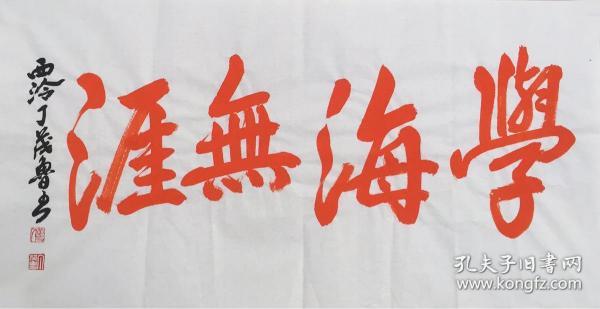 學海無涯
西泠丁茂魯书
孔夫子旧書网
www.kongfz.com